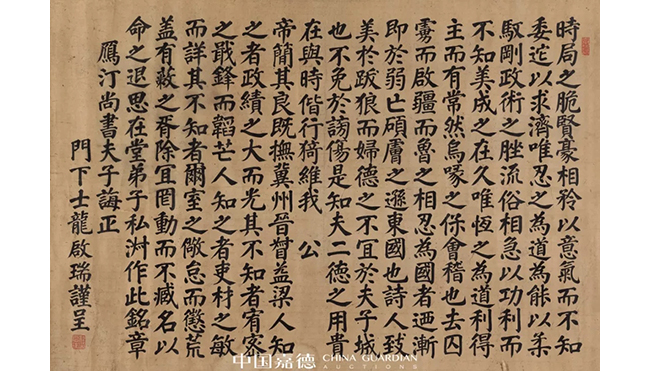 時局之脆賢豪相矜以意氣而不知
委迱以求濟唯忍之為道為能以柔
馭剛政術之脞流俗相急以功利而
不知美成之在久唯恆之為道利得
主而有常然烏喙之保會稽也去囚
虜而啟疆而魯之相忍為國者迺漸
即於弱亡碩膚之遜東國也詩人致
美於跋狼而婦德之不宜於夫子城
也不免於謗傷是知夫二德之用貴
在與時偕行猗維我 公
帝簡其良既撫冀州晉督益梁人知
之者政績之大而光其不知者宥密
之戢鋒而韜芒人知之者吏材之敏
而詳其不知者爾室之儆怠而懲荒
蓋有蔌之胥除宜罔動而不臧名以
命之退思在堂弟子私淑作此銘章
鴈汀尚書夫子誨正
門下士龍啟瑞謹呈
中国嘉德 CHINA GUARDIAN
AUCTIONS